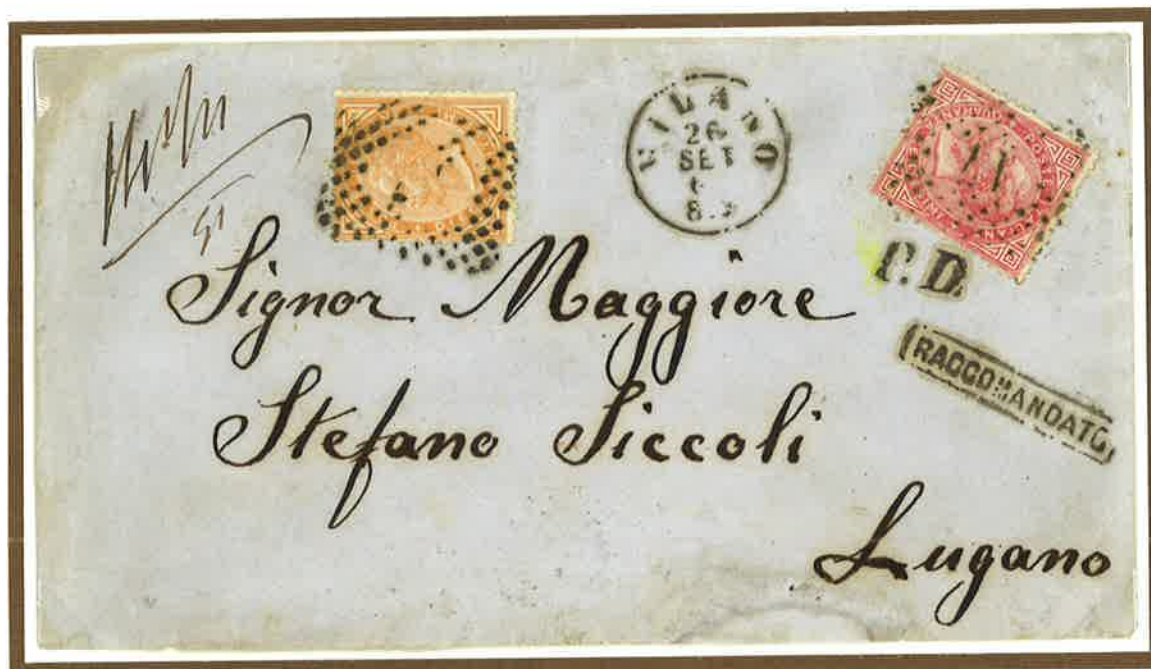 MILANO
26
SET
P.D.
RACCOMANDATO
Signor Maggiore
Stefano Siccoli
Lugano